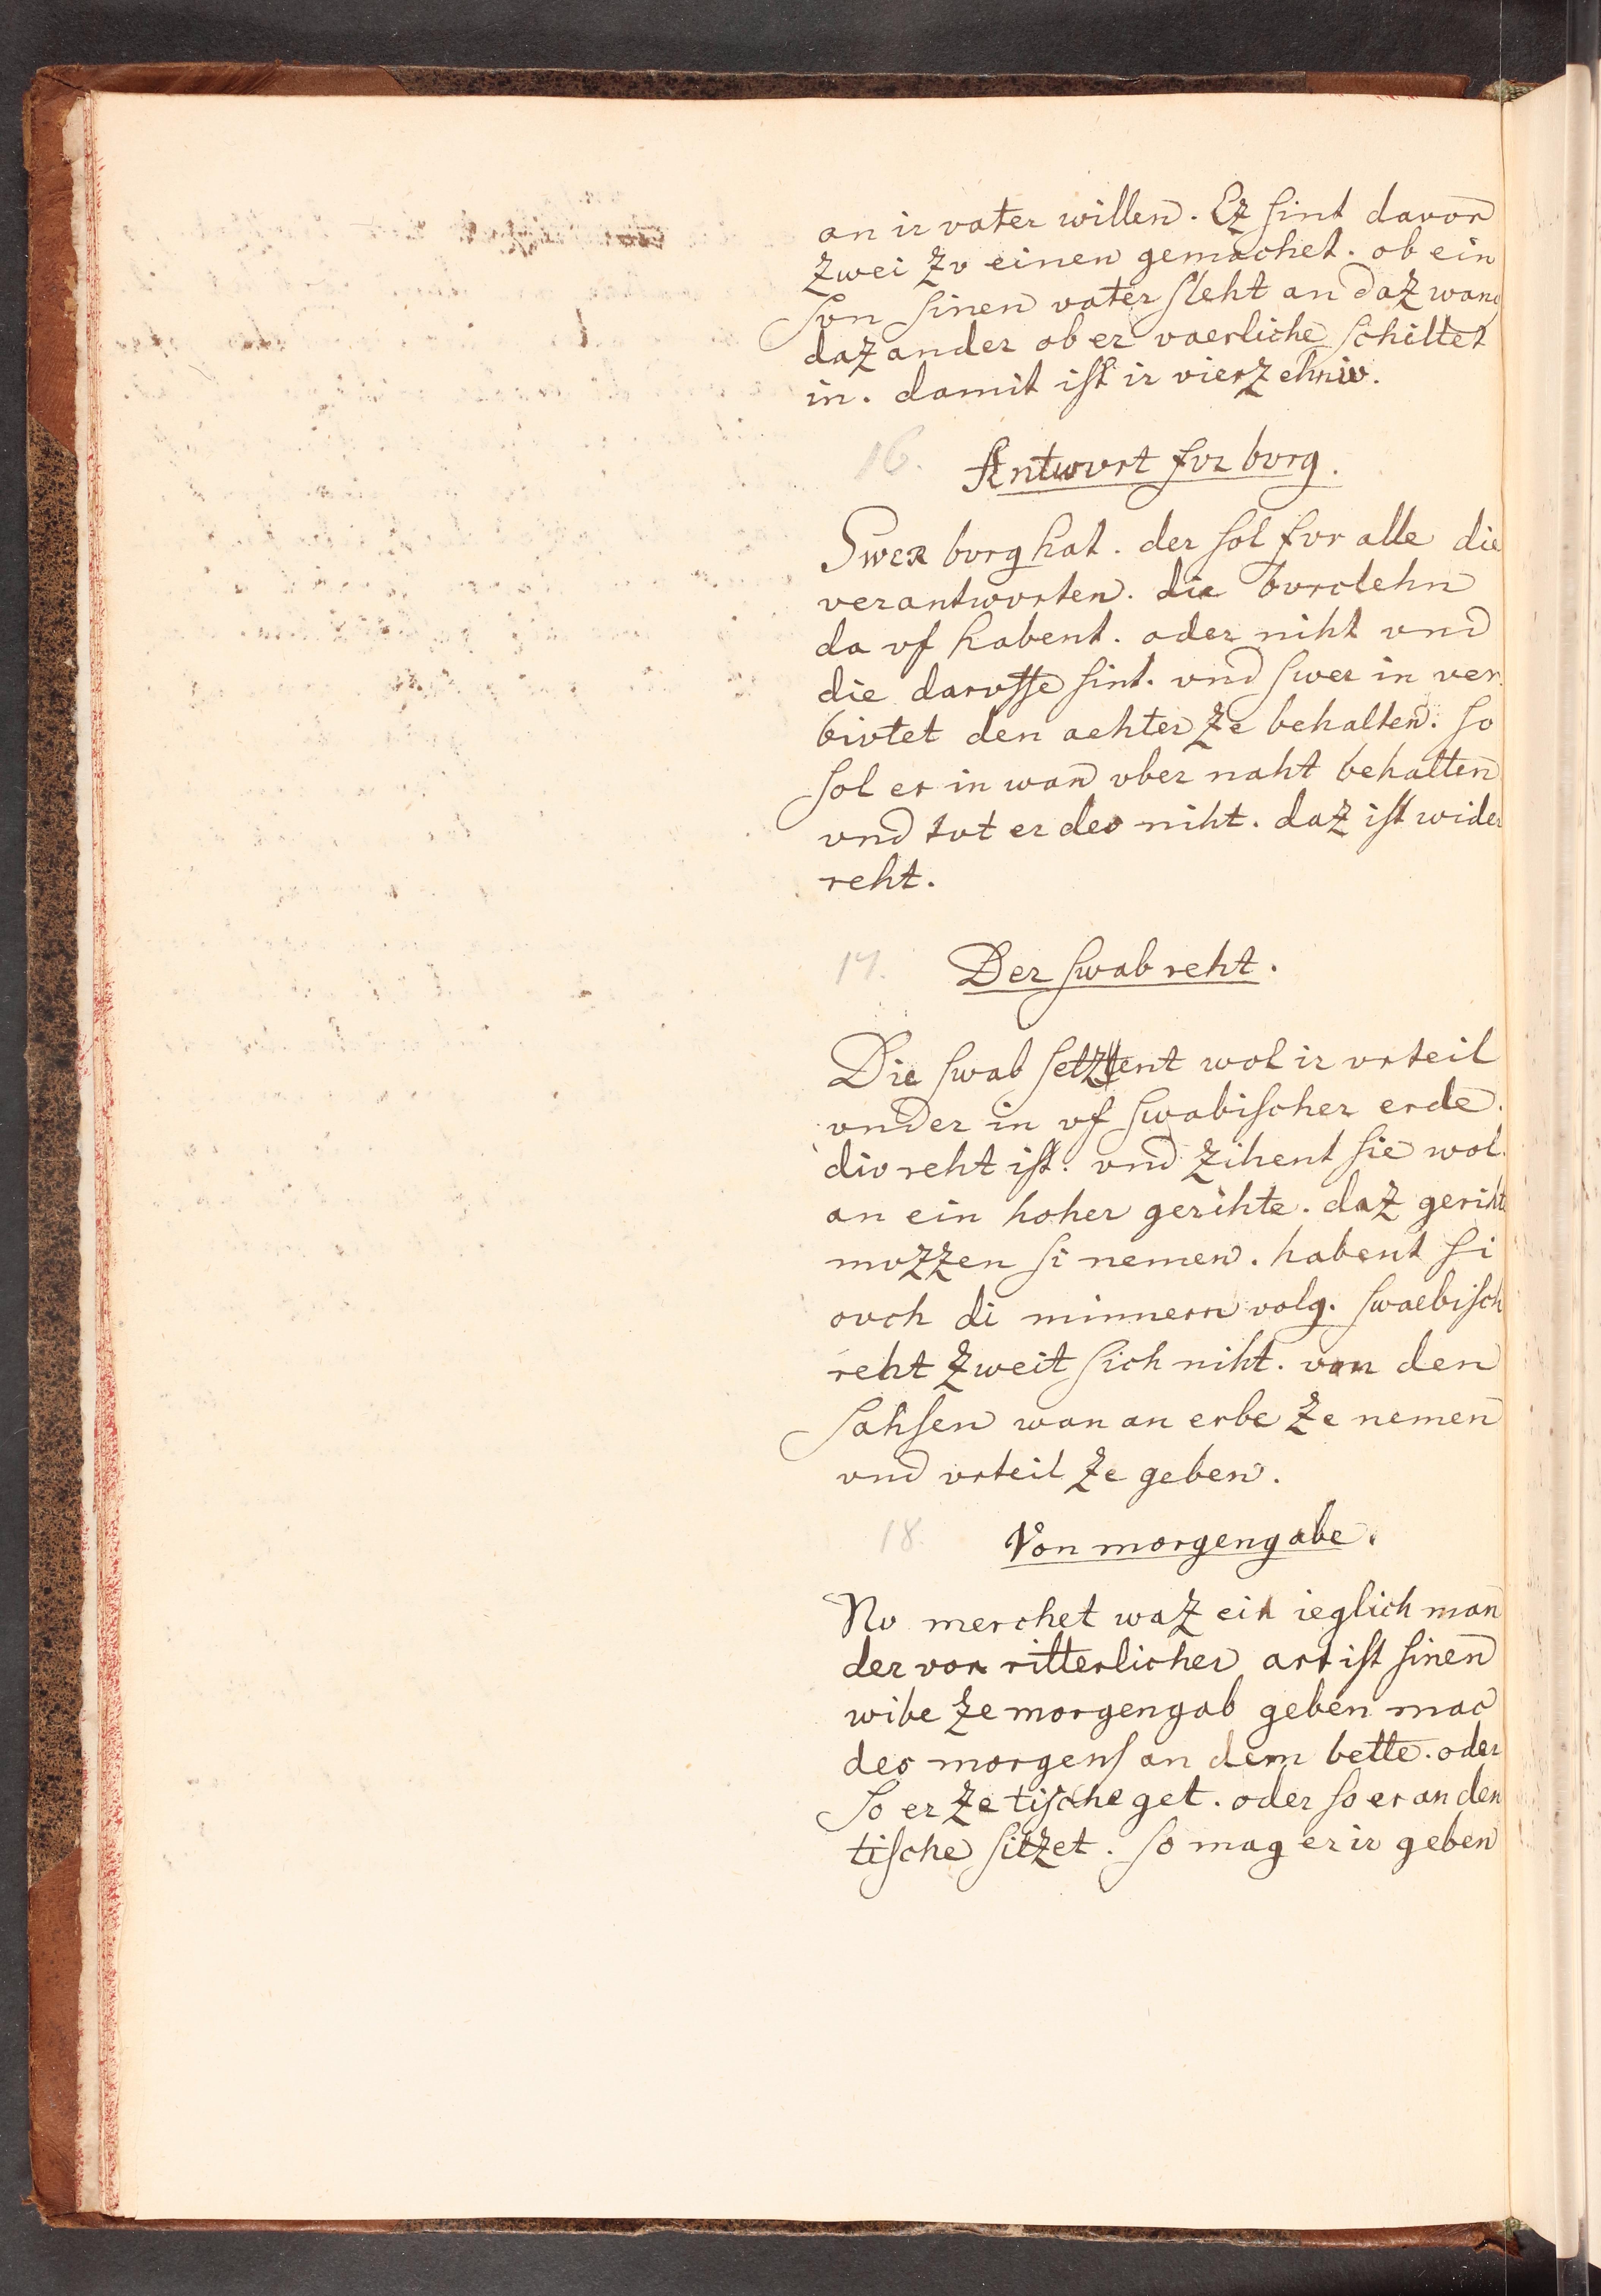 an ir vater willen. Ez sint davon
zwei zv einen gemachet. ob ein
svn sinen vater sleht an daz wang
daz ander ob er vaerliche schiltet
in. damit ist ir vierzehniv.
16. Antwurt fvr bvrg.
Swer bvrg hat. der sol fvr alle die
verantwrten. die bvrclehn
da vf habent. oder niht vnd
die darvffe sint. vnd swer in ver
bivtet den aehter ze behalten. so
sol er in wan vber naht behalten
vnd tvt er des niht. daz ist wider
reht.
17. Der swab reht.
Die swab setzent wol ir vrteil
vnder in vf swabischer erde.
div reht ist. vnd zihent sie wol.
an ein hoher gerihte. daz geriht
mvzzen si nemen. habent si
ovch di minnern volg. swaebisch
reht zweit sich niht. von den
sahsen wan an erbe ze nemen
vnd vrteil ze geben.
18. Von morgengabe.
Nv merchet waz ein ieglich man
der von ritterlicher art ist sinen
wibe ze morgengab geben mac
des morgens an dem bette. oder
so er ze tische get. oder so er an den
tische sitzet. so mag er ir geben